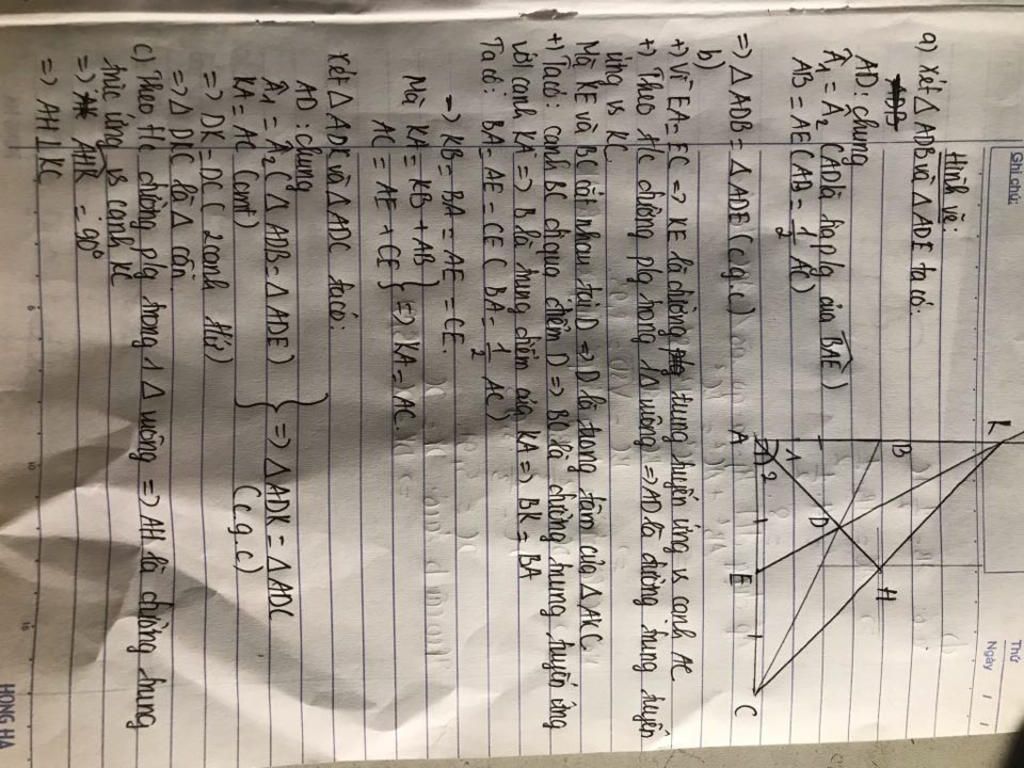 Ghi chú:
Thứ
Ngày / /
Hình vẽ:
K
B
H
D
1
2
A
E
C
a) Xét Δ ADB và Δ ADE ta có:
AD: chung
Â₁ = Â₂ (AD là tia p/g của BAE)
AB = AE (AB = 1/2 AC)
=> Δ ADB = Δ ADE (c.g.c)
b)
+) Vì EA = EC => KE là đường trung tuyến ứng vs cạnh AC
+) Theo t/c đường p/g trong 1Δ vuông => AD là đường trung tuyến
ứng vs KC
Mà KE và BC cắt nhau tại D => D là trọng tâm của ΔAKC.
+) Ta có: cạnh BC đi qua điểm D => BC là đường trung tuyến ứng
với cạnh KA => B là trung điểm của KA => BK = BA
Ta có: BA = AE = CE ( BA = 1/2 AC)
=> KB = BA = AE = CE.
Mà KA = KB + AB
AC = AE + CE } => KA = AC
xét Δ ADK và Δ ADC ta có:
AD: chung
Â₁ = Â₂ ( Δ ADB = Δ ADE)
KA = AC (cmt) } => Δ ADK = Δ ADC
(c.g.c)
=> DK = DC ( 2 cạnh t/ứ)
=> Δ DKC là Δ cân
c) Theo t/c đường p/g trong 1 Δ vuông => AH là đường trung
trực ứng vs cạnh KC
=> AHK = 90°
=> AH ⊥ KC
5
10
15
HONG HA